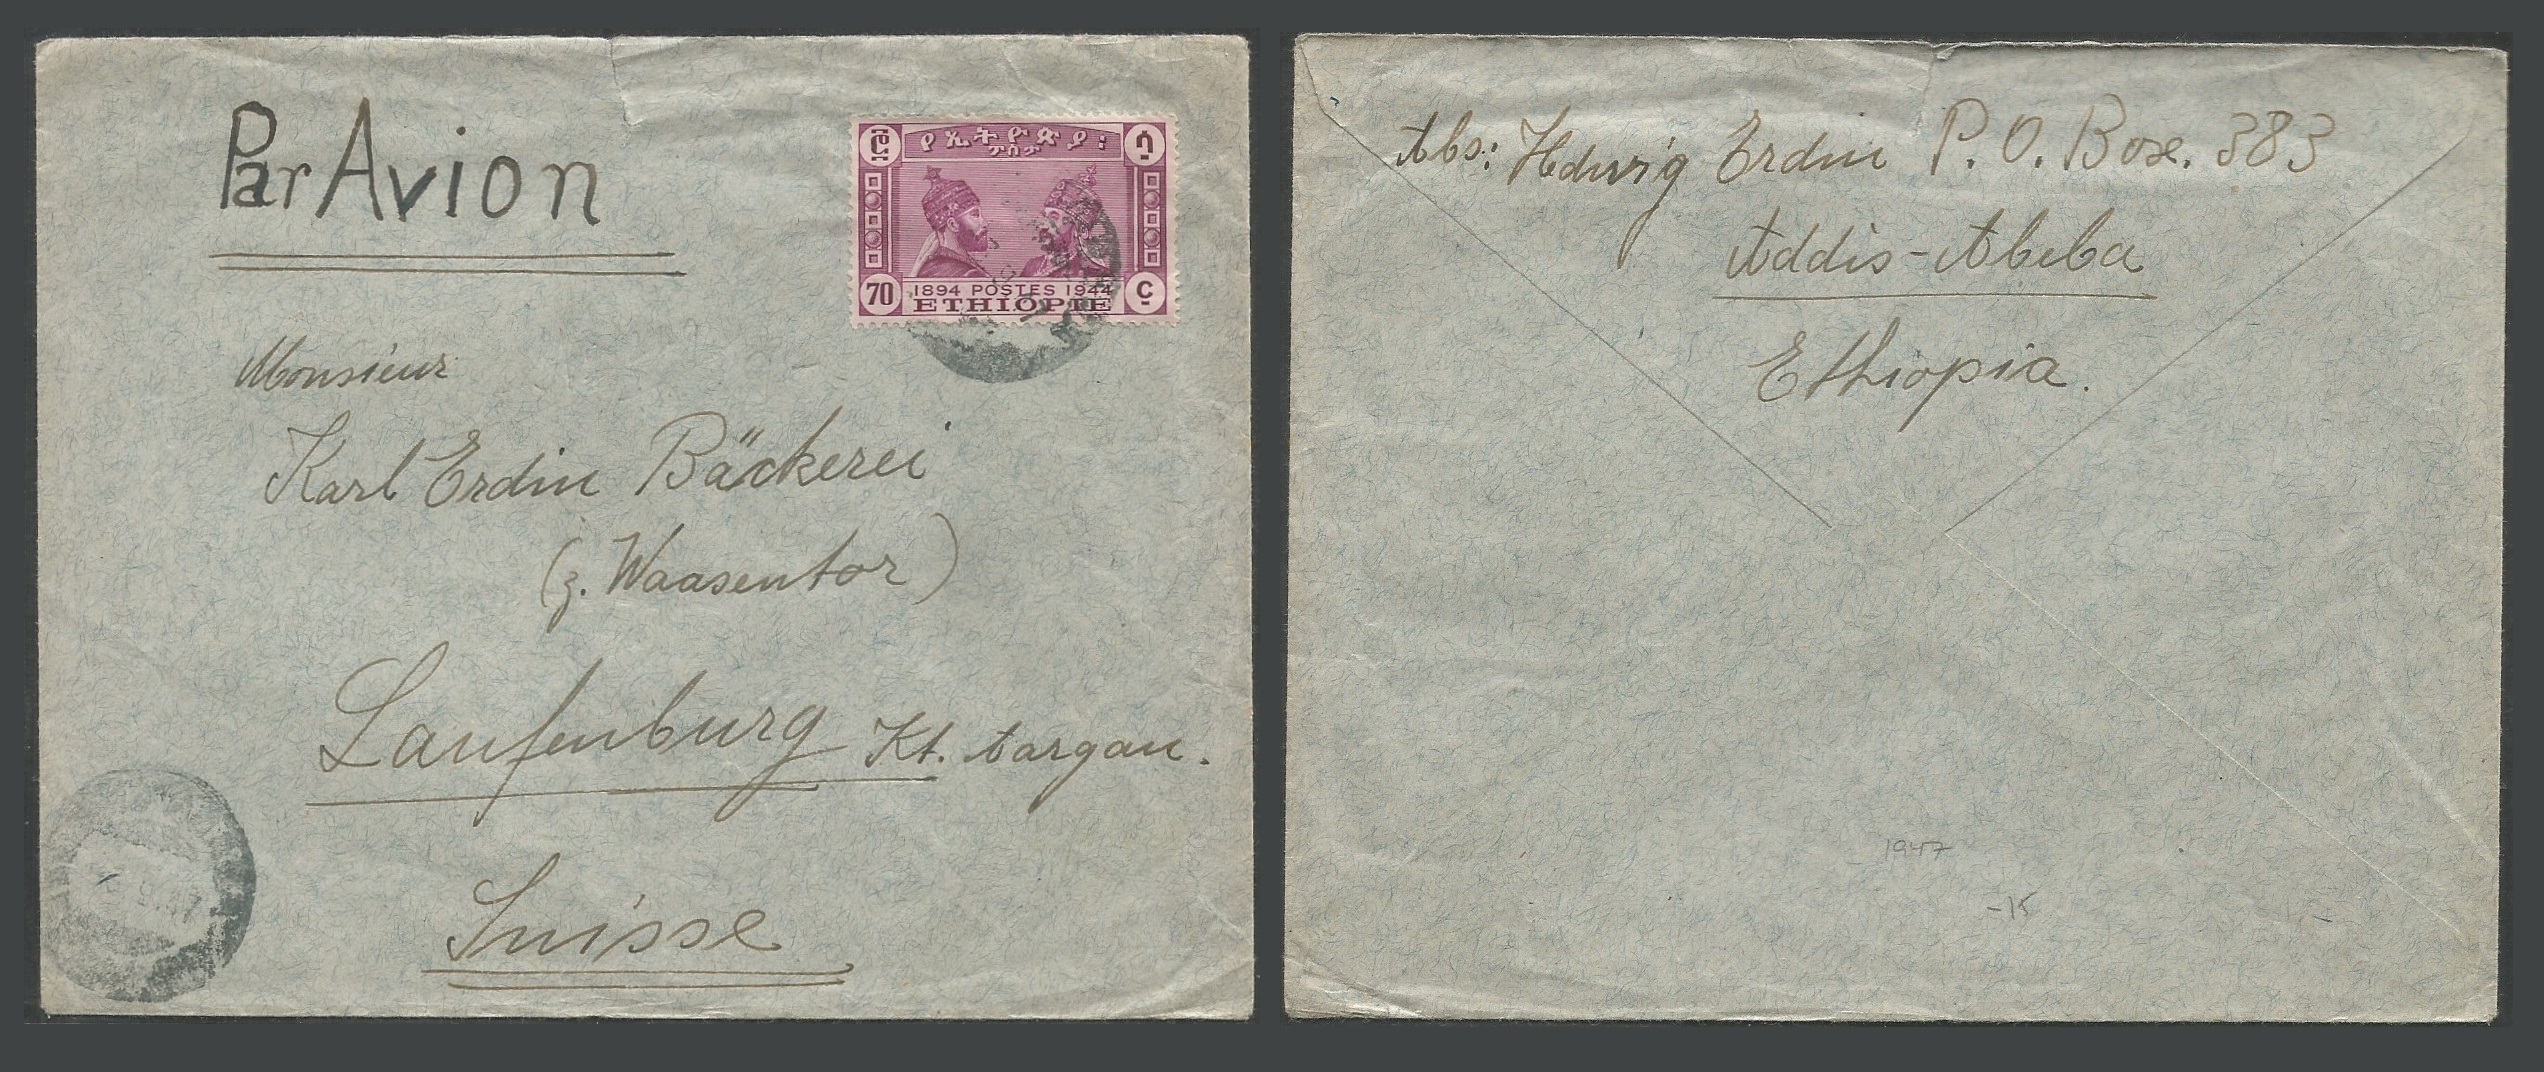 Par Avion
የኢትዮጵያ፡
ፖስታ
70
1894 POSTES 1944
ETHIOPIE
Monsieur
Karl Erdin Bäckerei
(z. Waasentor)
Laufenburg Kt. Aargau.
Suisse
Abs: Hedwig Erdin P. O. Box. 383
Addis-Abeba
Ethiopia.
1947
-15